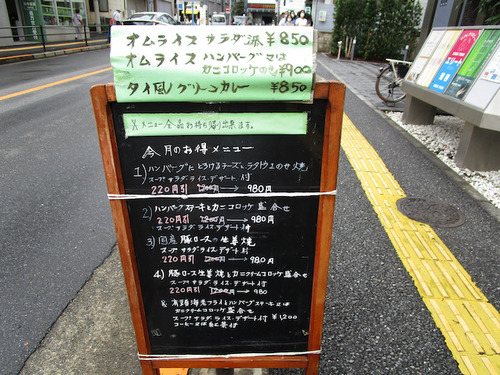 オムライス サラダ派 ¥850
オムライス ハンバーグ又は
カニコロッケのせ ¥900
タイ風グリーンカレー ¥850
メニュー全品お持ち帰り出来ます。
今月のお得メニュー
1) ハンバーグにとろけるチーズとラタトゥユのせ焼
スープ サラダ ライス デザート 付
220円引 1200円 → 980円
2) ハンバーグステーキとカニコロッケ盛合せ
220円引 1200円 → 980円
スープ サラダ ライス デザート付
3) 国産豚ロースの生姜焼
スープ サラダ ライス デザート付
220円引 1200円 → 980円
4) 豚ロース生姜焼とカニクリームコロッケ盛合せ
スープ サラダ ライス デザート付
220円引 1200円 → 980
& 有頭海老フライとハンバーグステーキ又は
カニクリームコロッケ盛合せ
スープ サラダ ライス デザート付 ¥1,200
コーヒー又は紅茶付